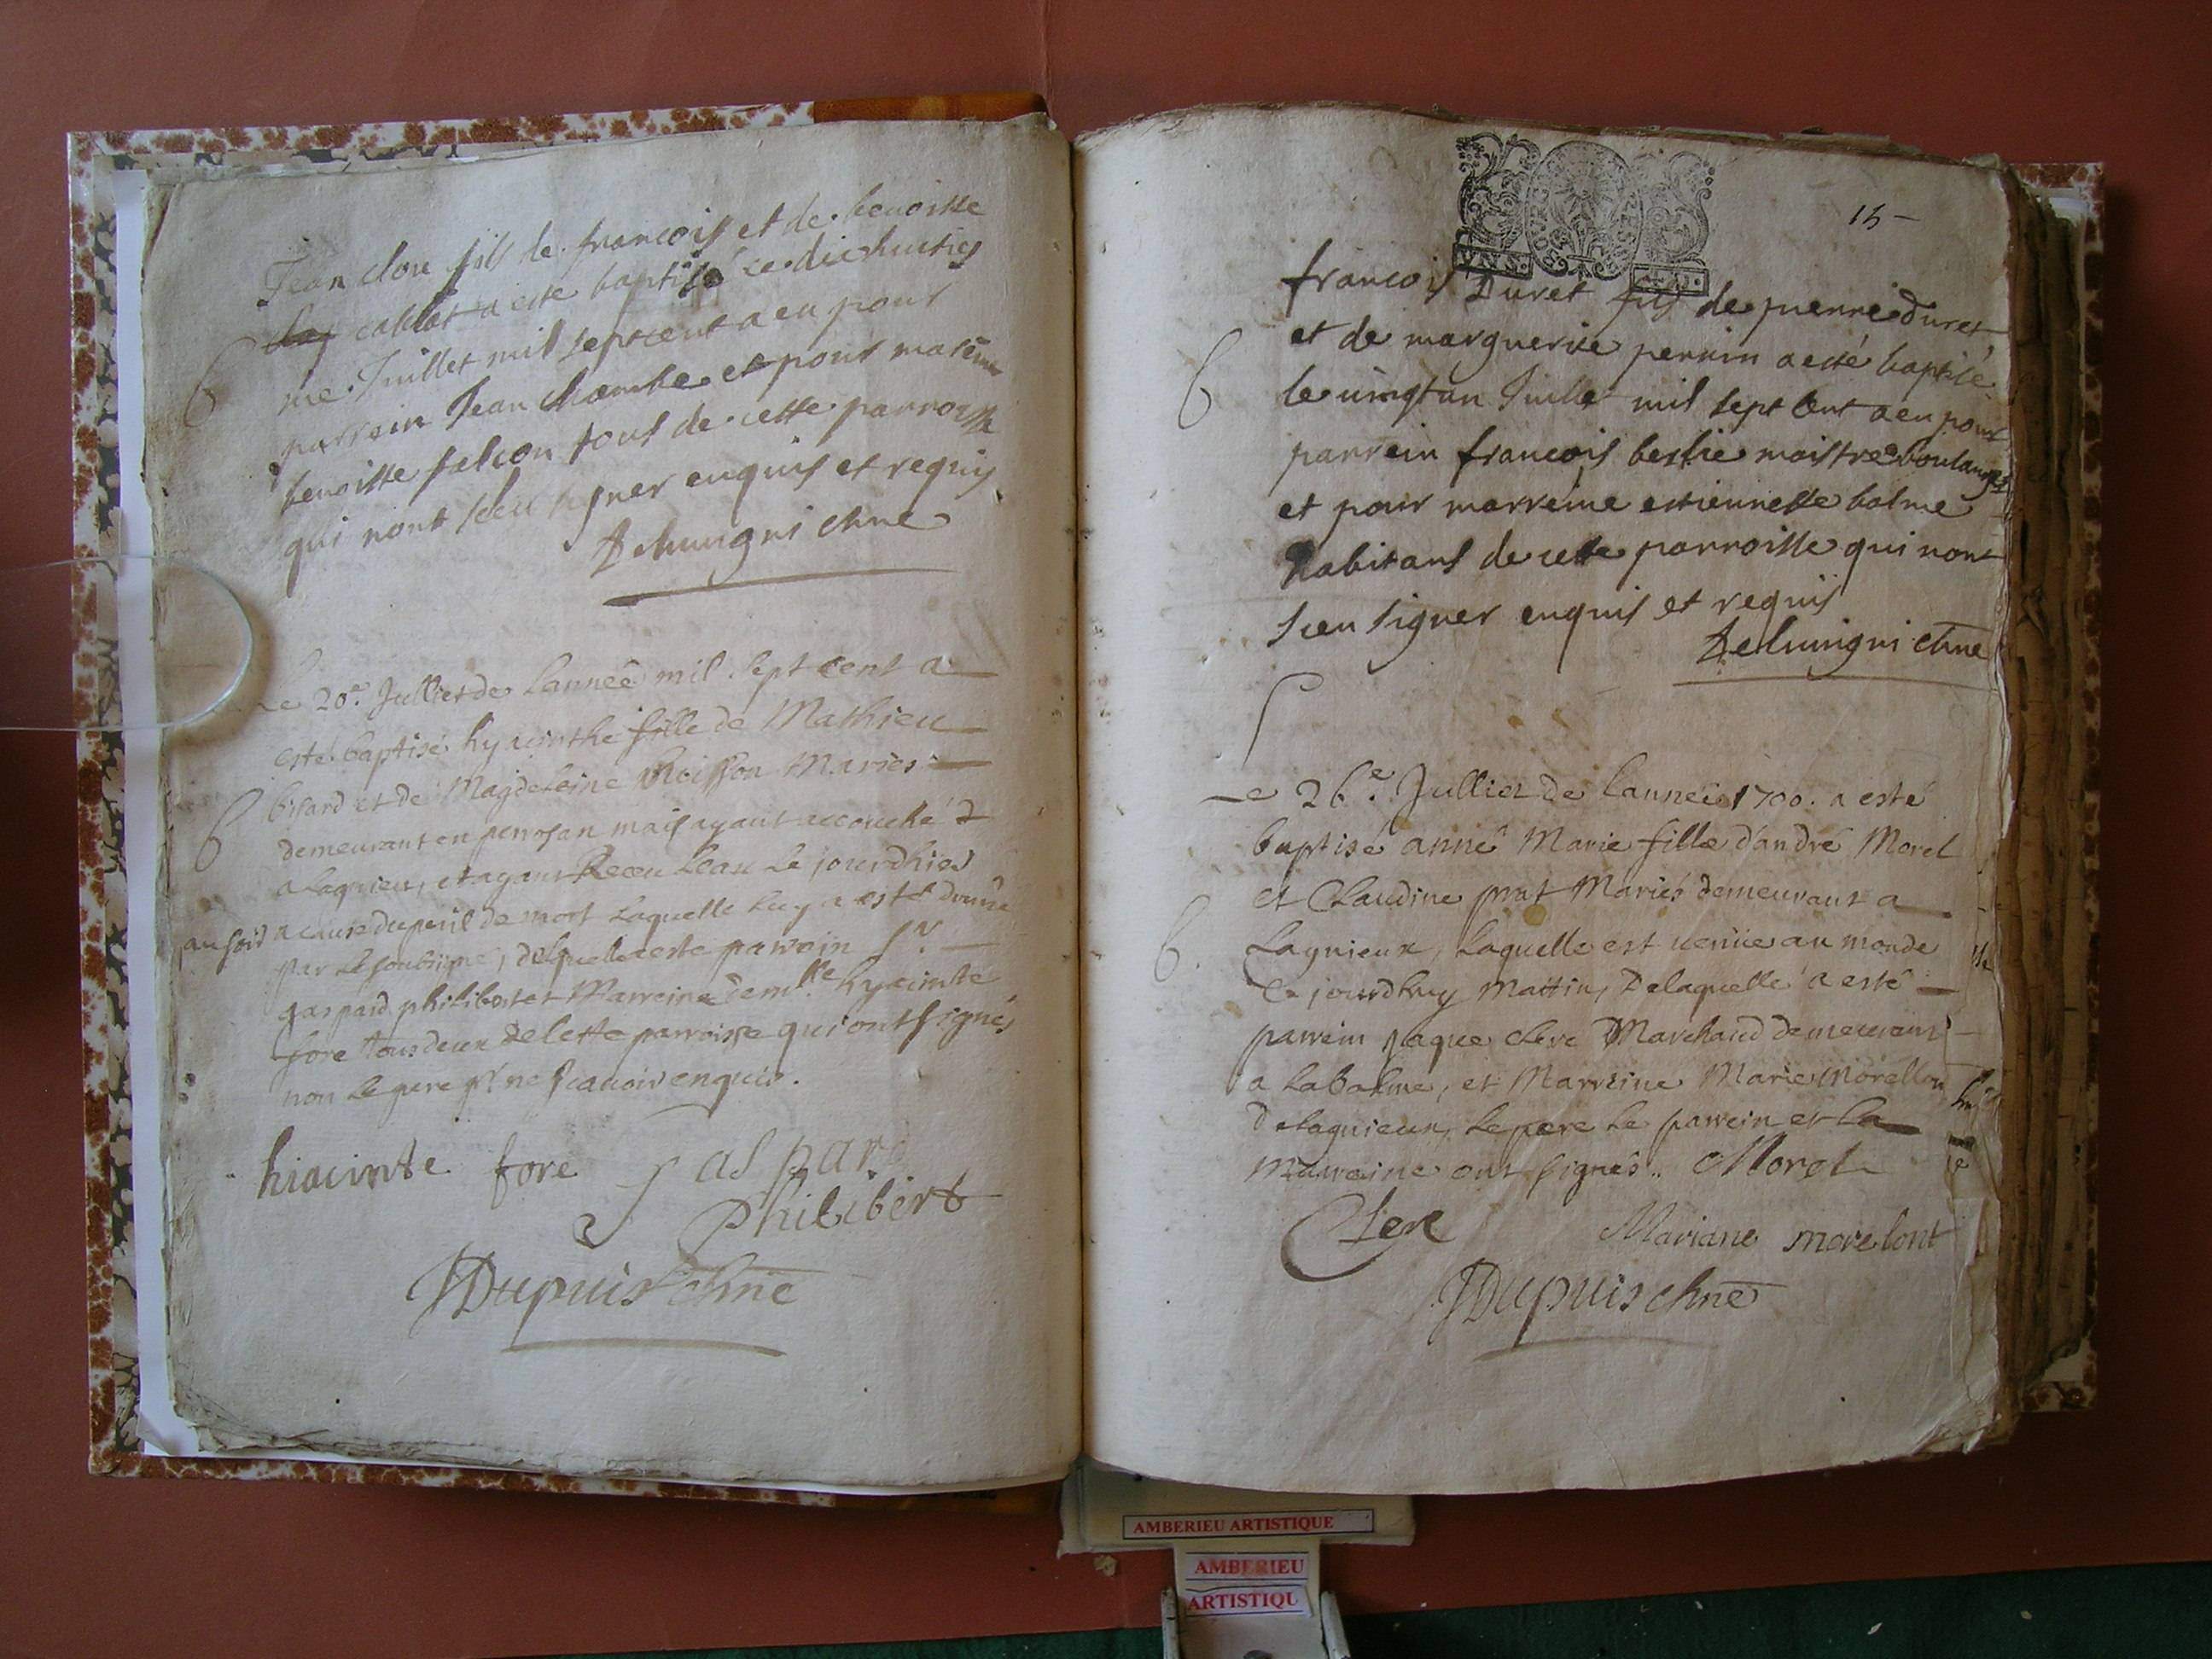 Jean clou fils de francois et de benoiste
cablat a este baptisé ce dichuities
me Juillet mil septcent a eu pour
parrein Jean chambe et pour mareine
benoitte falcon tous de cette parroisse
qui nont sceu signer enquis et requis
Delumgni chne
B
Le 20e. Julliet de lanneé mil sept cent a
esté baptisé hyacinthe fille de Mathieu
bisard et de Magdeleine Maries
demeurant en mais ayant accouché
a Lagnieu, et ayant Receu leau le jourdhier
au soir a cause du peril de mort laquelle luy a esté donnée
par le soubsigné, de laquelle a este parrein Sr
gaspard philibert et Marreine demlle hyacinte
fore tous deux de cette parroisse qui ont signés
non le pere pr ne scavoir enquis.
B
hiacinte fore gaspar
philibert
JDupuis chne
UN S.
15
francois Duret fils de pierre duret
et de marguerite perrin a esté baptisé
le uingtun Juillet mil sept Cent a eu pour
parrein francois berlie maistre boulanger
et pour marreine estiennette balme
habitans de cette parroisse qui nont
sceu signer enquis et requis
Delumgni chne
B
Le 26e. Julliet de lanneé 1700. a esté
baptisé anne Marie fille d'andré Morel
et Claudine prat Mariés demeurant a
Lagnieux, laquelle est uenüe au monde
Ce jourdhuy Mattin, Delaquelle a esté
parrein Jaque clere Marchand demeurant
a la balme, et Marreine Marie Morellon
de lagnieux, le pere le parrein et la
marreine ont signés.. Morel
B.
Clere Mariane morelont
JDupuis chne
AMBERIEU ARTISTIQUE
AMBERIEU
ARTISTIQU